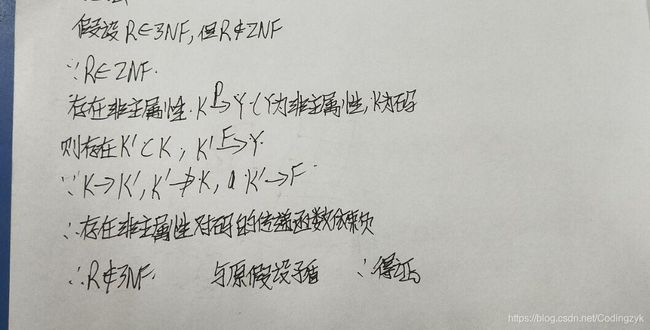 假设 R∈3NF, 但R∉2NF
∵R∈2NF.
存在非主属性. K P→Y (Y为非主属性, K为码
则存在K'⊂K, K' F→Y.
∵K→K', K'↛K, K'→F
∴存在非主属性对码的传递函数依赖
∴R∉3NF. 与原假设矛盾 ∴得证。
https://blog.csdn.net/Codingzyk